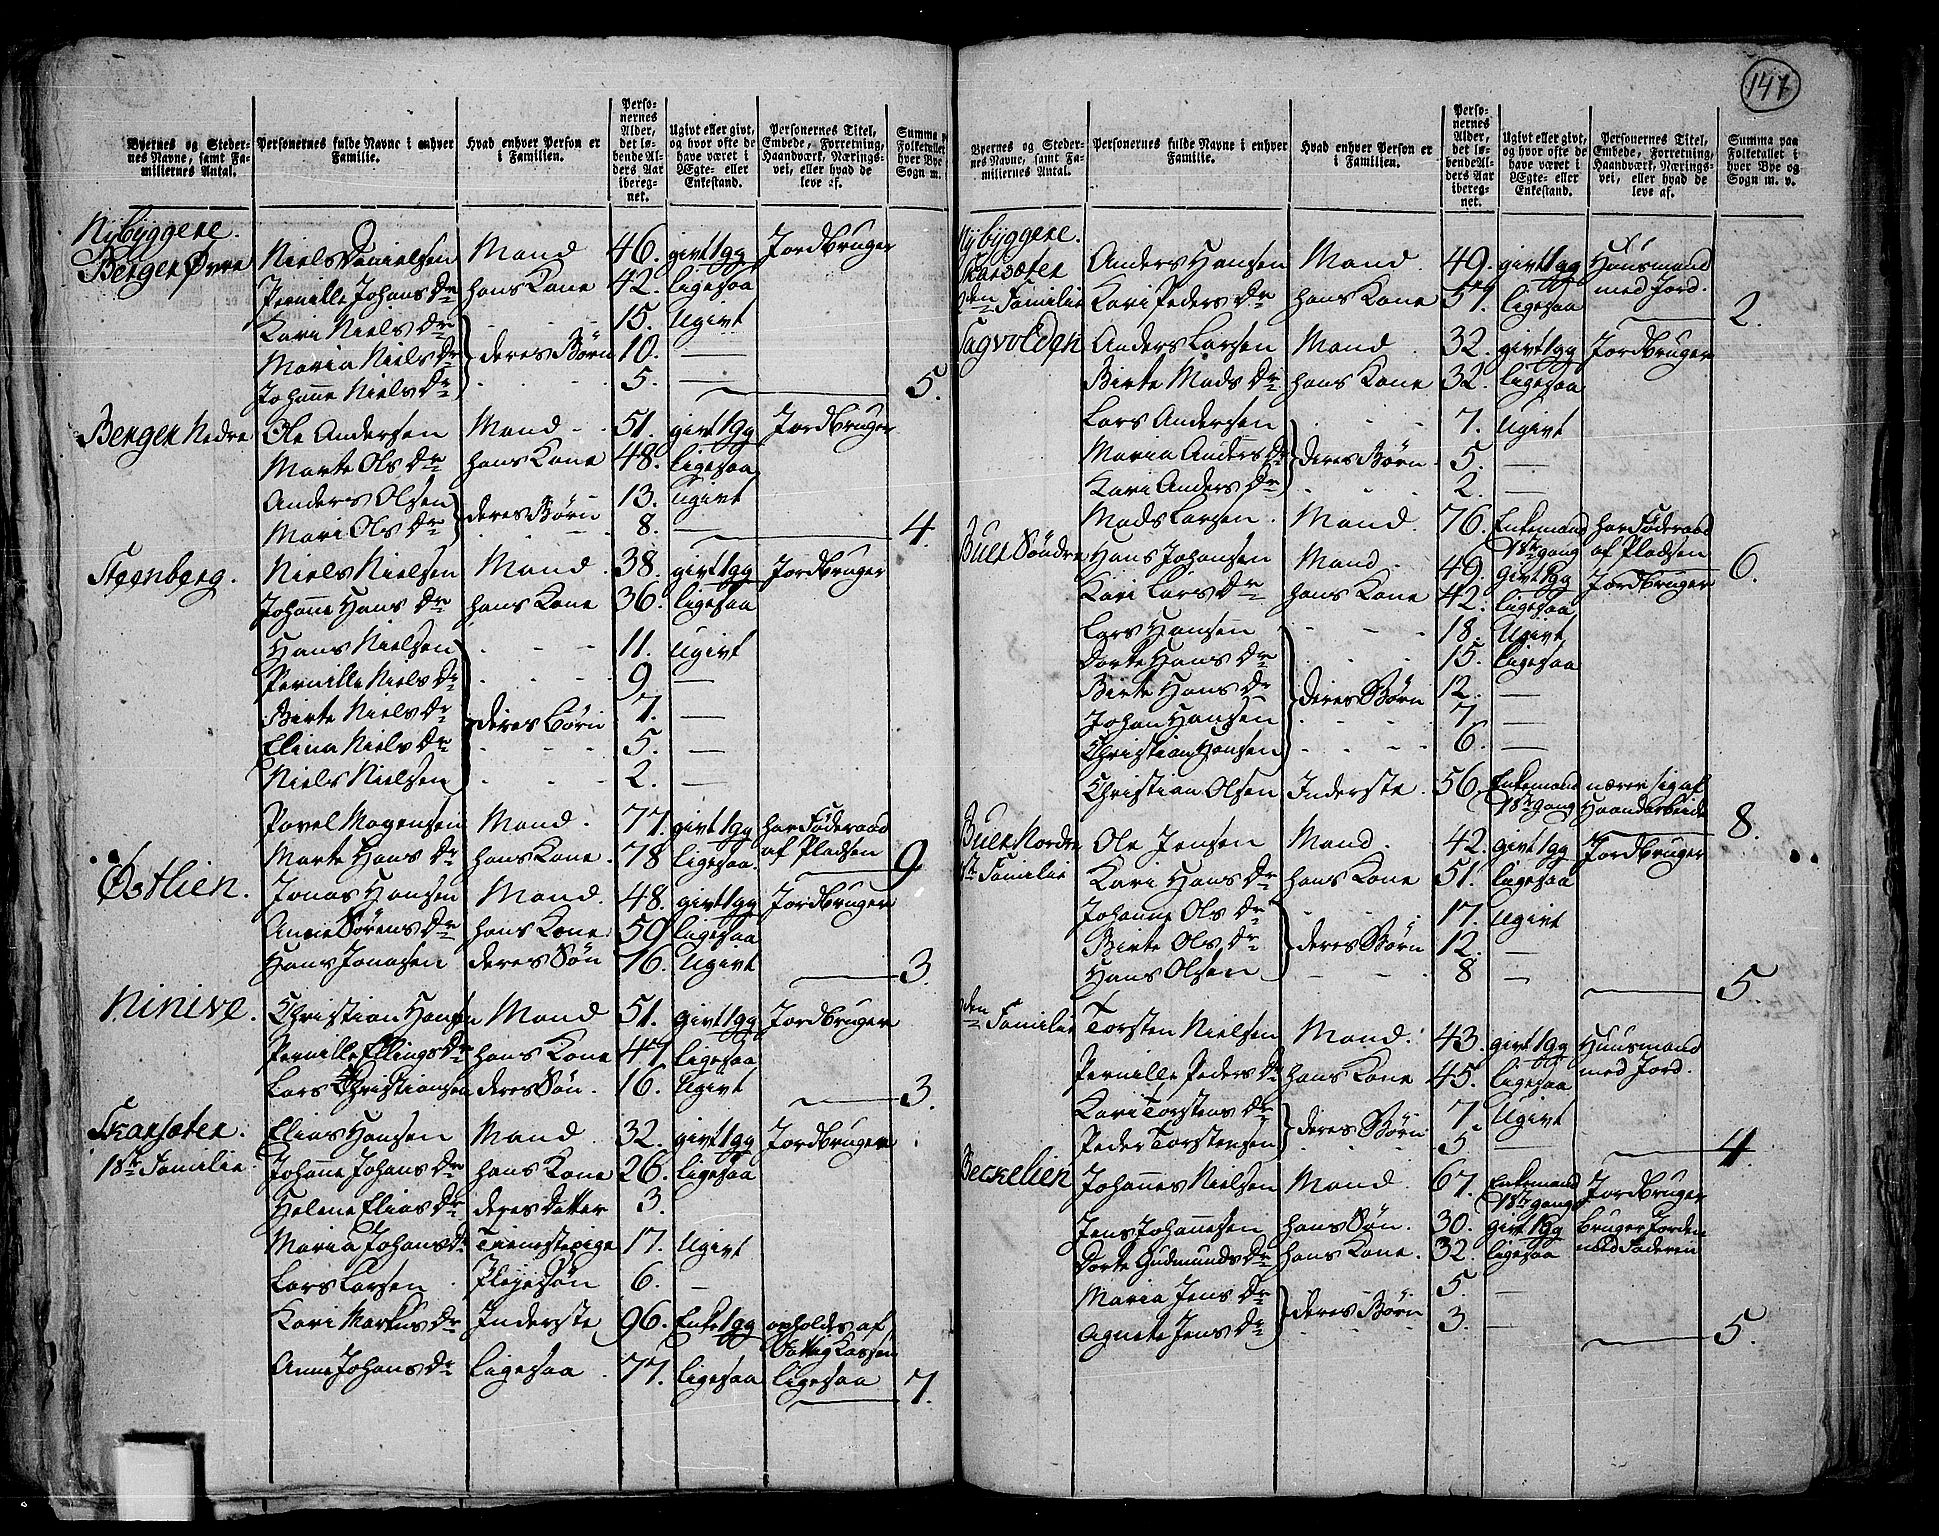 147
Byernes og Steder-
nes Navne, samt Fa-
miliernes Antal.
Personernes fulde Navne i enhver
Familie.
Hvad enhver Person er
i Familien.
Perso-
nernes
Alder,
det lø-
bende Al-
ders Aar
ibereg-
net.
Ugivt eller givt,
og hvor ofte de
have været i
Ægte- eller
Enkestand.
Personernes Titel,
Embede, Forretning,
Haandværk, Nærings-
vei, eller hvad de
leve af.
Summa
Folketallet
hver Bye og
Sogn m.
Nybyggere.
Berger Øvre Niels Danielsen Mand 46. givt 1 gg Jordbruger
Pernille Johans Dr hans Kone 42. ligesaa
Kari Niels Dr 15. Ugivt
Maria Niels Dr deres Børn 10. —
Johanne Niels Dr 5. — 5.
Berger Nedre Ole Andersen Mand 51. givt 1 gg Jordbruger
Marte Ols Dr hans Kone 48. ligesaa
Anders Olsen 13. Ugivt
Mari Ols Dr deres Børn 8. — 4.
Steenberg. Niels Nielsen Mand 38. givt 1 gg Jordbruger
Johanne Hans Dr hans Kone 36. ligesaa
Hans Nielsen 11. Ugivt
Pernille Niels Dr 9. —
Birte Niels Dr deres Børn 7. —
Elina Niels Dr 5. —
Niels Nielsen 2. —
Povel Mogensen Mand. 77. givt 1 gg har Føderaad
Marte Hans Dr hans Kone. 78 ligesaa. af Pladsen 9
Østlien. Jonas Hansen Mand. 48. givt 1 gg Jordbruger
Anne Sørens Dr hans Kone 50 ligesaa
Hans Jonasen deres Søn 16. Ugivt 3.
Ninive. Christian Hansen Mand 51. givt 1 gg Jordbruger
Pernille Ellings Dr hans Kone 47. ligesaa
Lars Christiansen deres Søn. 16. Ugivt 3.
Skarsæter. Elias Hansen Mand 32. givt 1 gg Jordbruger
1ste Familie. Johanne Johans Dr hans Kone 26. ligesaa
Helene Elias Dr deres Datter 3.
Maria Johans Dr Tienestepige 17. Ugivt
Lars Larsen Plejesøn 6. —
Kari Markus Dr Inderste 96. Enke 1 gg opholdes af
Fattig Kassen
Anne Johans Dr ligesaa 77. ligesaa ligesaa 7.
Byernes og Steder-
nes Navne, samt Fa-
miliernes Antal.
Personernes fulde Navne i enhver
Familie.
Hvad enhver Person er
i Familien.
Perso-
nernes
Alder,
det lø-
bende Al-
ders Aar
ibereg-
net.
Ugivt eller givt,
og hvor ofte de
have været i
Ægte- eller
Enkestand.
Personernes Titel,
Embede, Forretning,
Haandværk, Nærings-
vei, eller hvad de
leve af.
Summa paa
Folketallet i
hver Bye og
Sogn m. v.
Nybyggere.
Skarsæter Anders Hansen Mand. 49. givt 1 gg Huusmand
2den Familie Kari Peders Dr hans Kone 57. ligesaa med Jord. 2.
Sagvolden Anders Larsen Mand 32. givt 1 gg Jordbruger
Birte Mads Dr hans Kone 32. ligesaa
Lars Andersen 7. Ugivt
Maria Anders Dr deres Børn 5. —
Kari Anders Dr 2. —
Mads Larsen. Mand. 76. Enkemand har Føderaad
1ste gang af Pladsen 6.
Buer Søndre Hans Johansen Mand 49. givt 1 gg Jordbruger
Kari Lars Dr hans Kone 42. ligesaa
Lars Hansen 18. Ugivt
Dorte Hans Dr 15. ligesaa
Birte Hans Dr deres Børn 12. —
Johan Hansen 7 —
Christian Hansen 6. —
Christian Olsen Inderste. 56. Enkemand nærer sig af
1ste gang Haandarbeide 8.
Buer Nordre Ole Jensen Mand. 42. givt 1 gg Jordbruger
1ste Familie Kari Hans Dr hans Kone 51. ligesaa
Johanne Ols Dr 17. Ugivt
Birte Ols Dr deres Børn 12. —
Hans Olsen 8 — 5.
2den Familie Torsten Nielsen Mand. 43. givt 1 gg Huusmand
Pernille Peders Dr hans Kone 45. ligesaa med Jord.
Kari Torstens Dr 7. Ugivt
Peder Torstensen deres Børn 5 — 4.
Beckelien Johannes Nielsen Mand. 67. Enkemand Jordbruger
1ste gang
Jens Johannesen hans Søn. 30. givt 1 gg bruger Jorden
Dorte Gudmunds Dr hans Kone. 32. ligesaa med Faderen
Maria Jens Dr 5. —
Agnete Jens Dr deres Børn 3. — 5.